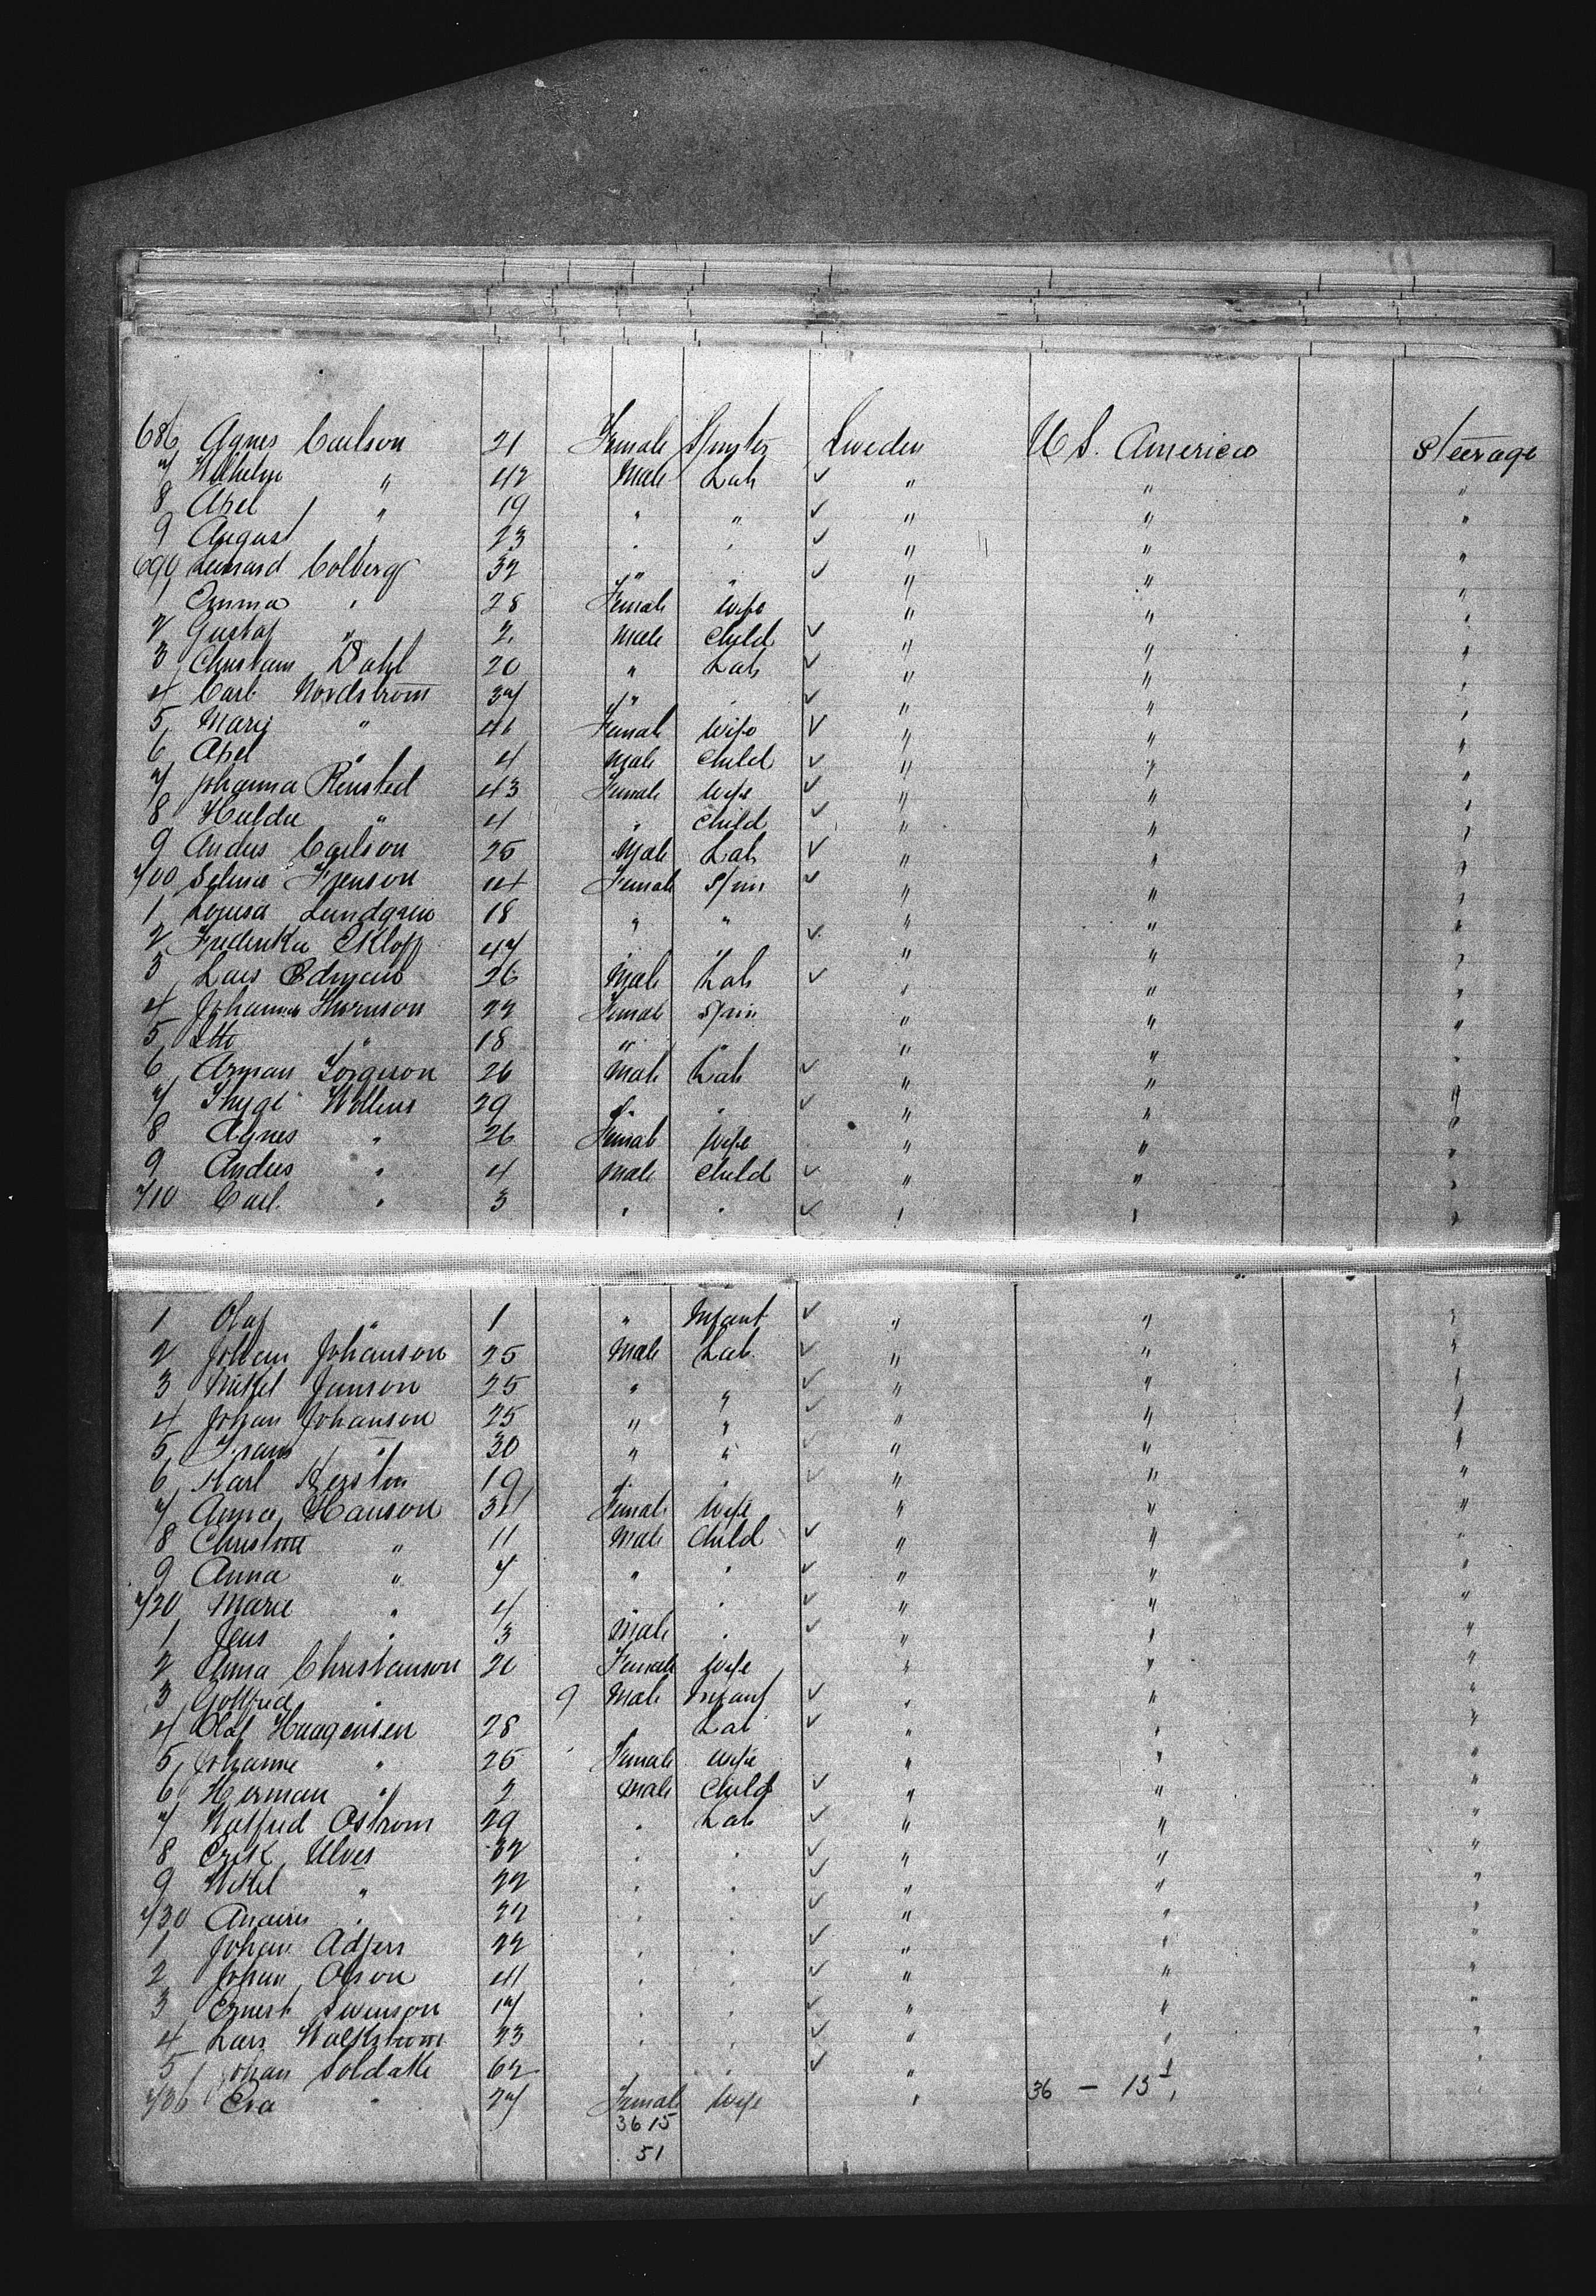 686 Agnes Carlson 21 Female Spinster Sweden U S. America Steerage
7 Wilhelm " 42 Male Lab ✓ " " "
8 Axel " 19 " " ✓ " " "
9 August " 23 " " ✓ " " "
690 Leonard Colberg 32 " " ✓ " " "
1 Emma " 28 Female Wife " " "
2 Gustaf " 2 Male Child ✓ " " "
3 Christian Dahl 20 " Lab ✓ " " "
4 Carl Nordstrom 37 " " ✓ " " "
5 Mary " 46 Female Wife ✓ " " "
6 Axel " 4 Male Child ✓ " " "
7 Johanna Rinsted 43 Female Wife ✓ " " "
8 Hulda " 4 " Child ✓ " " "
9 Andus Carlson 25 Male Lab ✓ " " "
700 Selma 14 Female Spin ✓ " " "
1 Louisa Lundgren 18 " " " " "
2 Frederika Ekloff 47 " " ✓ " " "
3 Lars 26 Male Lab ✓ " " "
4 Johanna Thornson 22 Female Spin " " "
5 18 " " " " "
6 Arman 26 Male Lab ✓ " " "
7 Wollins 29 " " ✓ " " "
8 Agnes " 26 Female Wife " " "
9 Andus " 4 Male Child ✓ " " "
710 Carl " 3 " " ✓ " " "
1 Olaf " 1 " Infant ✓ " " "
2 Johan Johanson 25 Male Lab ✓ " " "
3 Mikel Janson 25 " " ✓ " " "
4 Johan Johanson 25 " " ✓ " " "
5 Frans " 30 " " ✓ " " "
6 Karl Kerstin 19 " " ✓ " " "
7 Anna Hanson 34 Female Wife " " "
8 " 11 Male Child ✓ " " "
9 Anna " 7 " " ✓ " " "
720 Marie " 4 " " ✓ " " "
1 Jens " 3 Male " ✓ " " "
2 Anna Christanson 20 Female Wife " " "
3 Gottfried " 9 Male Infant ✓ " " "
4 Olaf Haagensen 28 Lab ✓ " " "
5 Johanne " 25 Female Wife " " "
6 Herman " 2 Male Child ✓ " " "
7 Walfrid Ostrom 29 " Lab ✓ " " "
8 Erik Ulves 32 " " ✓ " " "
9 Mikel " 22 " " ✓ " " "
730 " 22 " " ✓ " " "
1 Johan Adjers 22 " " ✓ " " "
2 Johan Olson 41 " " ✓ " " "
3 Ernest Swenson 17 " " ✓ " " "
4 Lars Walkstrom 23 " " ✓ " " "
5 Johan Soldatke 62 " " ✓ "
736 Eva " 27 Female Wife " 36 — 15
36 15
51